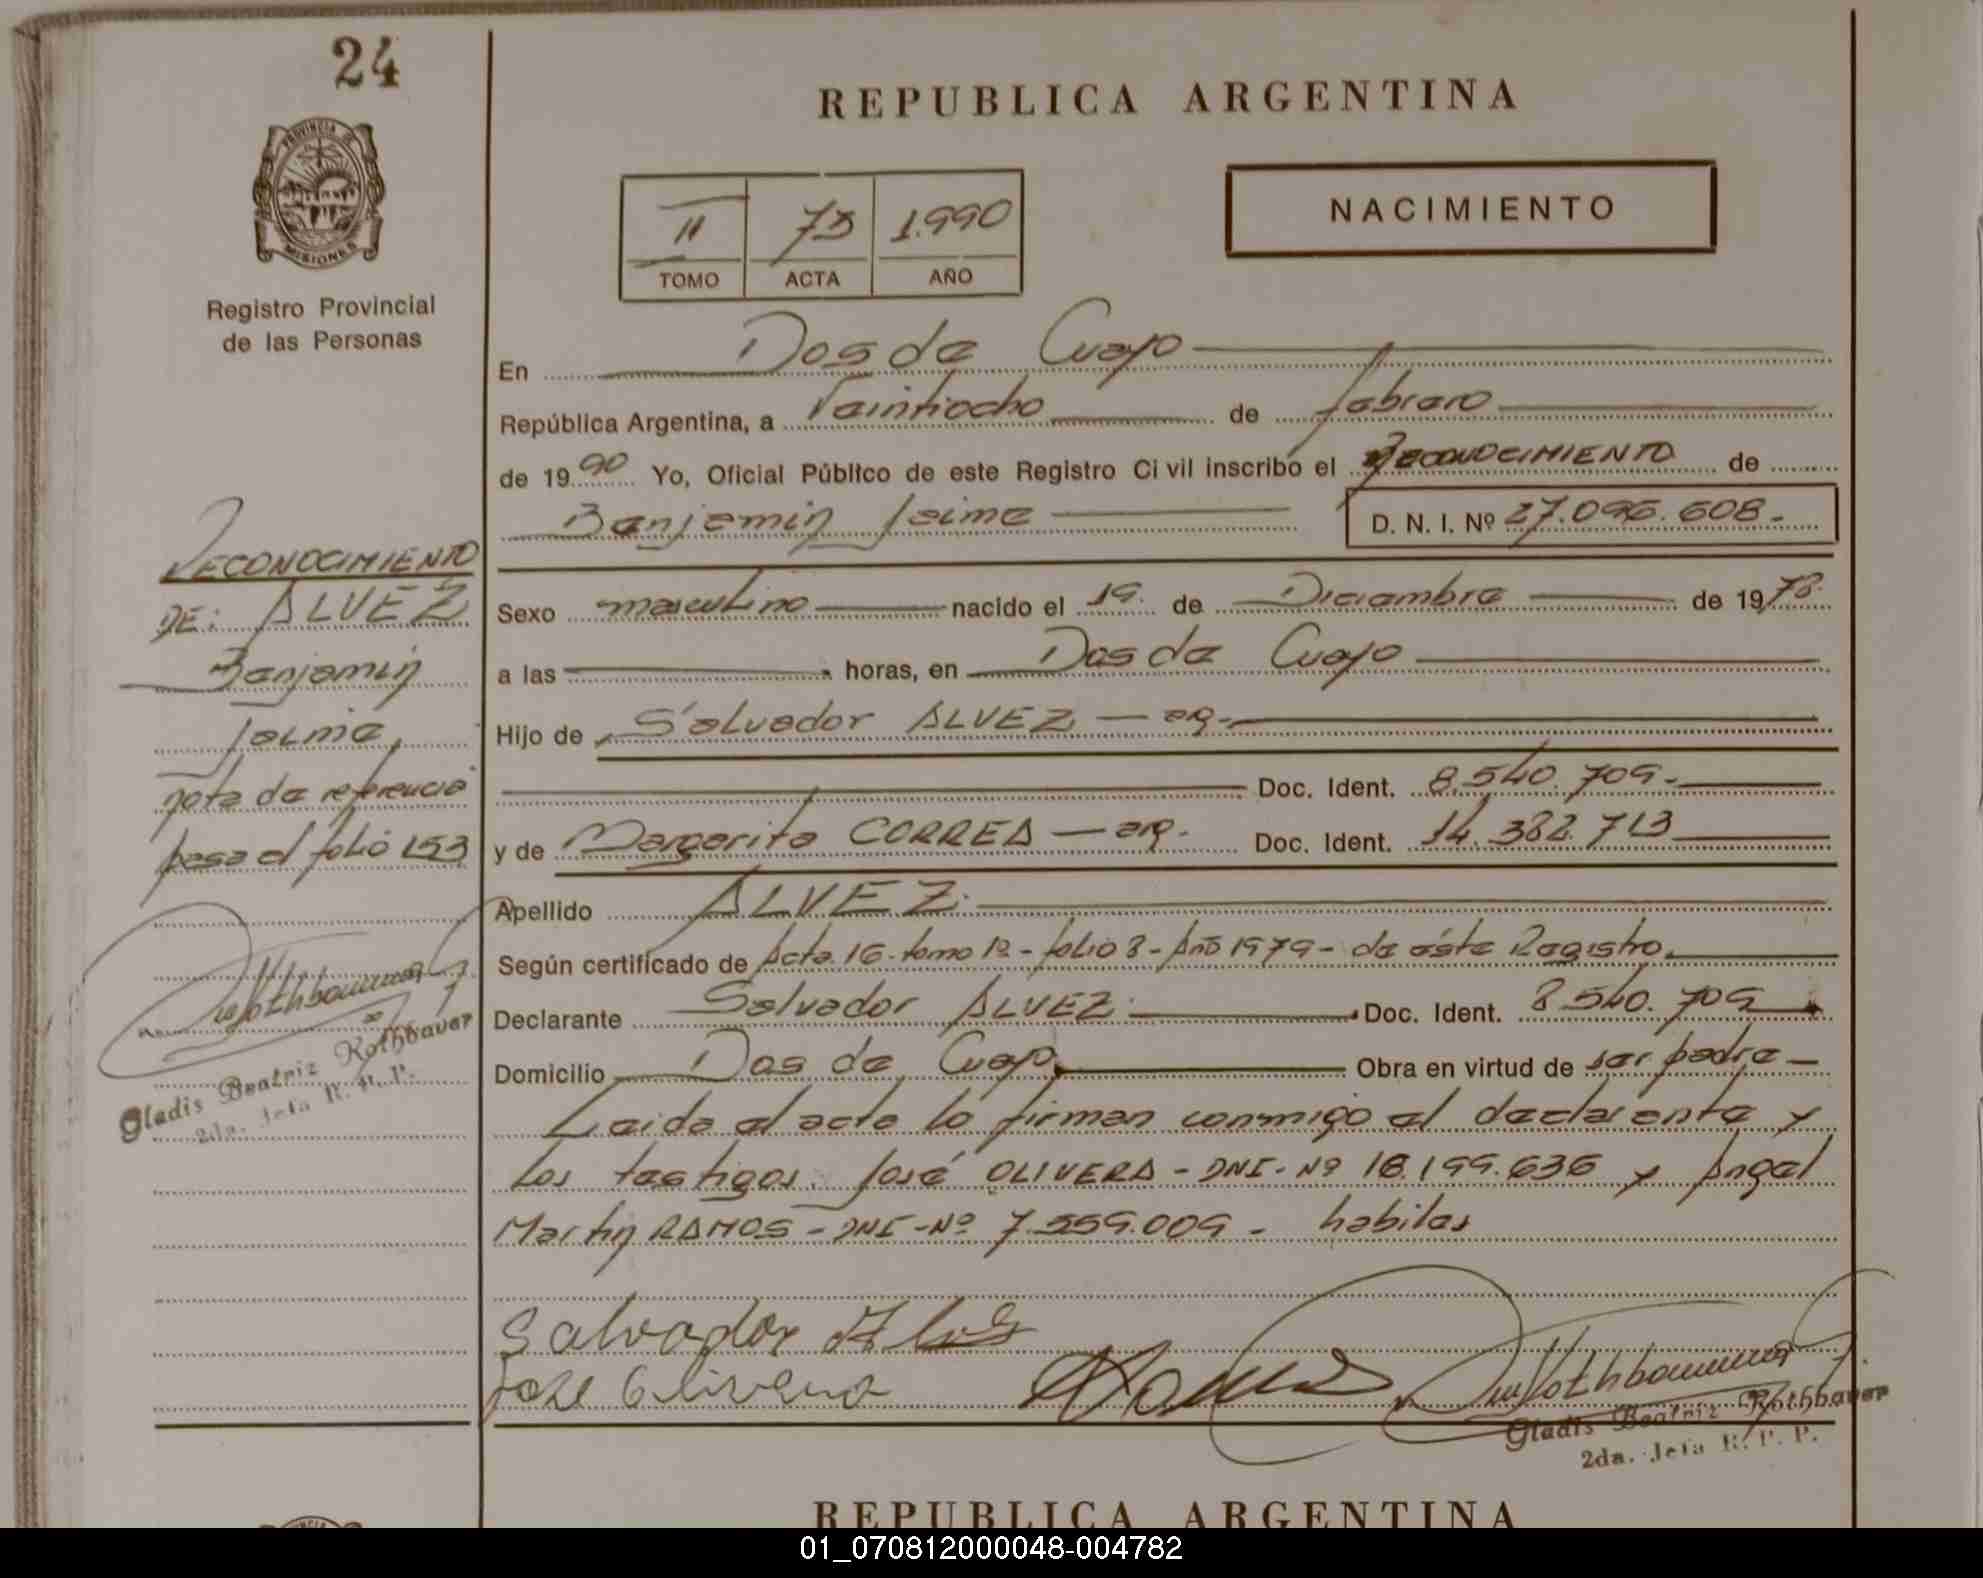 24
PROVINCIA DE
MISIONES
Registro Provincial
de las Personas
REPUBLICA ARGENTINA
II 73 1.990
TOMO ACTA AÑO
NACIMIENTO
En Dos de Mayo
República Argentina, a Veintiocho de febrero
de 1990 Yo, Oficial Público de este Registro Civil inscribo el RECONOCIMIENTO de
Benjamin Jaime D. N. I. Nº 27.096.608.-
Sexo masculino nacido el 19. de Diciembre de 1978.
a las horas, en Dos de Mayo
Hijo de Salvador ALVEZ — arg.-
Doc. Ident. 8.540.709.-
y de Margarita CORREA — arg. Doc. Ident. 14.382.713
Apellido ALVEZ.
Según certificado de Acta 16- tomo 1º - folio 8 - Año 1979 - de éste Registro.
Declarante Salvador ALVEZ. Doc. Ident. 8.540.709
Domicilio Dos de Mayo. Obra en virtud de ser padre —
Leida el acta lo firman conmigo el declarante y
los testigos. José OLIVERA - DNI - Nº 18.199.636 y Angel
Martin RAMOS - DNI - Nº 7.559.009 - habiles
Salvador
Jose Olivera
Gladis Beatriz Rothbauer
2da. Jefa R. P. P.
RECONOCIMIENTO
DE: ALVEZ
Benjamin
Jaime,
nota de referencia
pasa al folio 153
Gladis Beatriz Rothbauer
2da. Jefa R. P. P.
REPUBLICA ARGENTINA
01_070812000048-004782